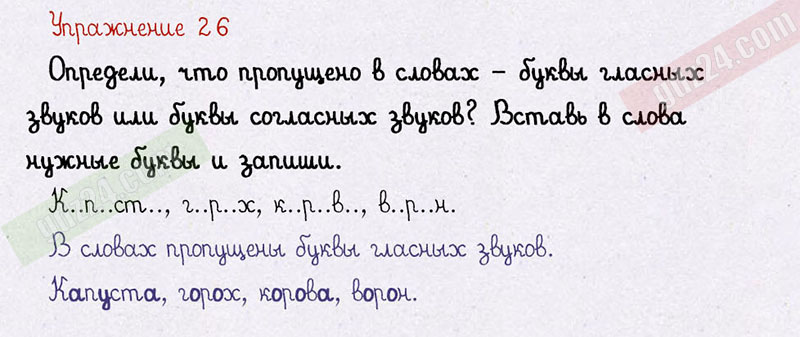 Упражнение 26
Определи, что пропущено в словах – буквы гласных
звуков или буквы согласных звуков? Вставь в слова
нужные буквы и запиши.
К..п..ст.., г..р..х, к..р..в.., в..р..н.
В словах пропущены буквы гласных звуков.
Капуста, горох, корова, ворон.
gdz24.com
gdz24.com